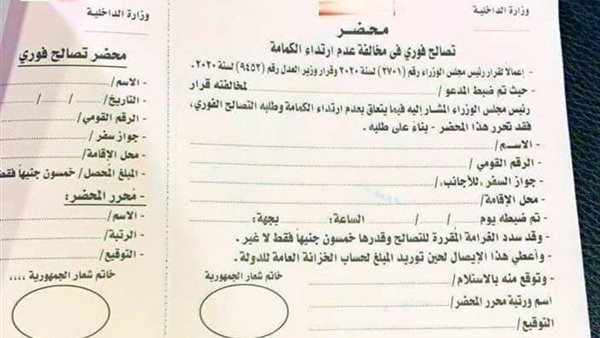 وزارة الداخلية
محضر
تصالح فورى فى مخالفة عدم ارتداء الكمامة
- إعمالاً لقرار رئيس مجلس الوزراء رقم (٢٧٠١) لسنة ٢٠٢٠ وقرار وزير العدل رقم (٩٤٥٢) لسنة ٢٠٢٠.
- حيث تم ضبط المدعو / لمخالفته قرار
رئيس مجلس الوزراء المشار إليه فيما يتعلق بعدم ارتداء الكمامة وطلبه التصالح الفورى،
فقد تحرر هذا المحضر - بناءً على طلبه .
- الاســم /
- الرقم القومي /
- جواز السفر ,للأجانب, /
- محل الإقامة /
- تم ضبطه يوم / / الساعة: بجهة:
- وقد سدد الغرامة المقررة للتصالح وقدرها خمسون جنيهاً فقط لا غير .
- وأعطي هذا الإيصال لحين توريد المبلغ لحساب الخزانة العامة للدولة .
- وتوقع منه بالاستلام /
اسم ورتبة محرر المحضر/
التوقيع /
خاتم شعار الجمهورية
وزارة الداخلية
محضر تصالح فوري
- الاسم /
- التاريخ / / /
- الرقم القومي /
- جواز سفر /
- محل الإقامة /
- المبلغ المحصل / خمسون جنيهاً فقط
- مُحرر المحضر:
- الاسم /
- الرتبة /
- التوقيع /
خاتم شعار الجمهورية ،،،،